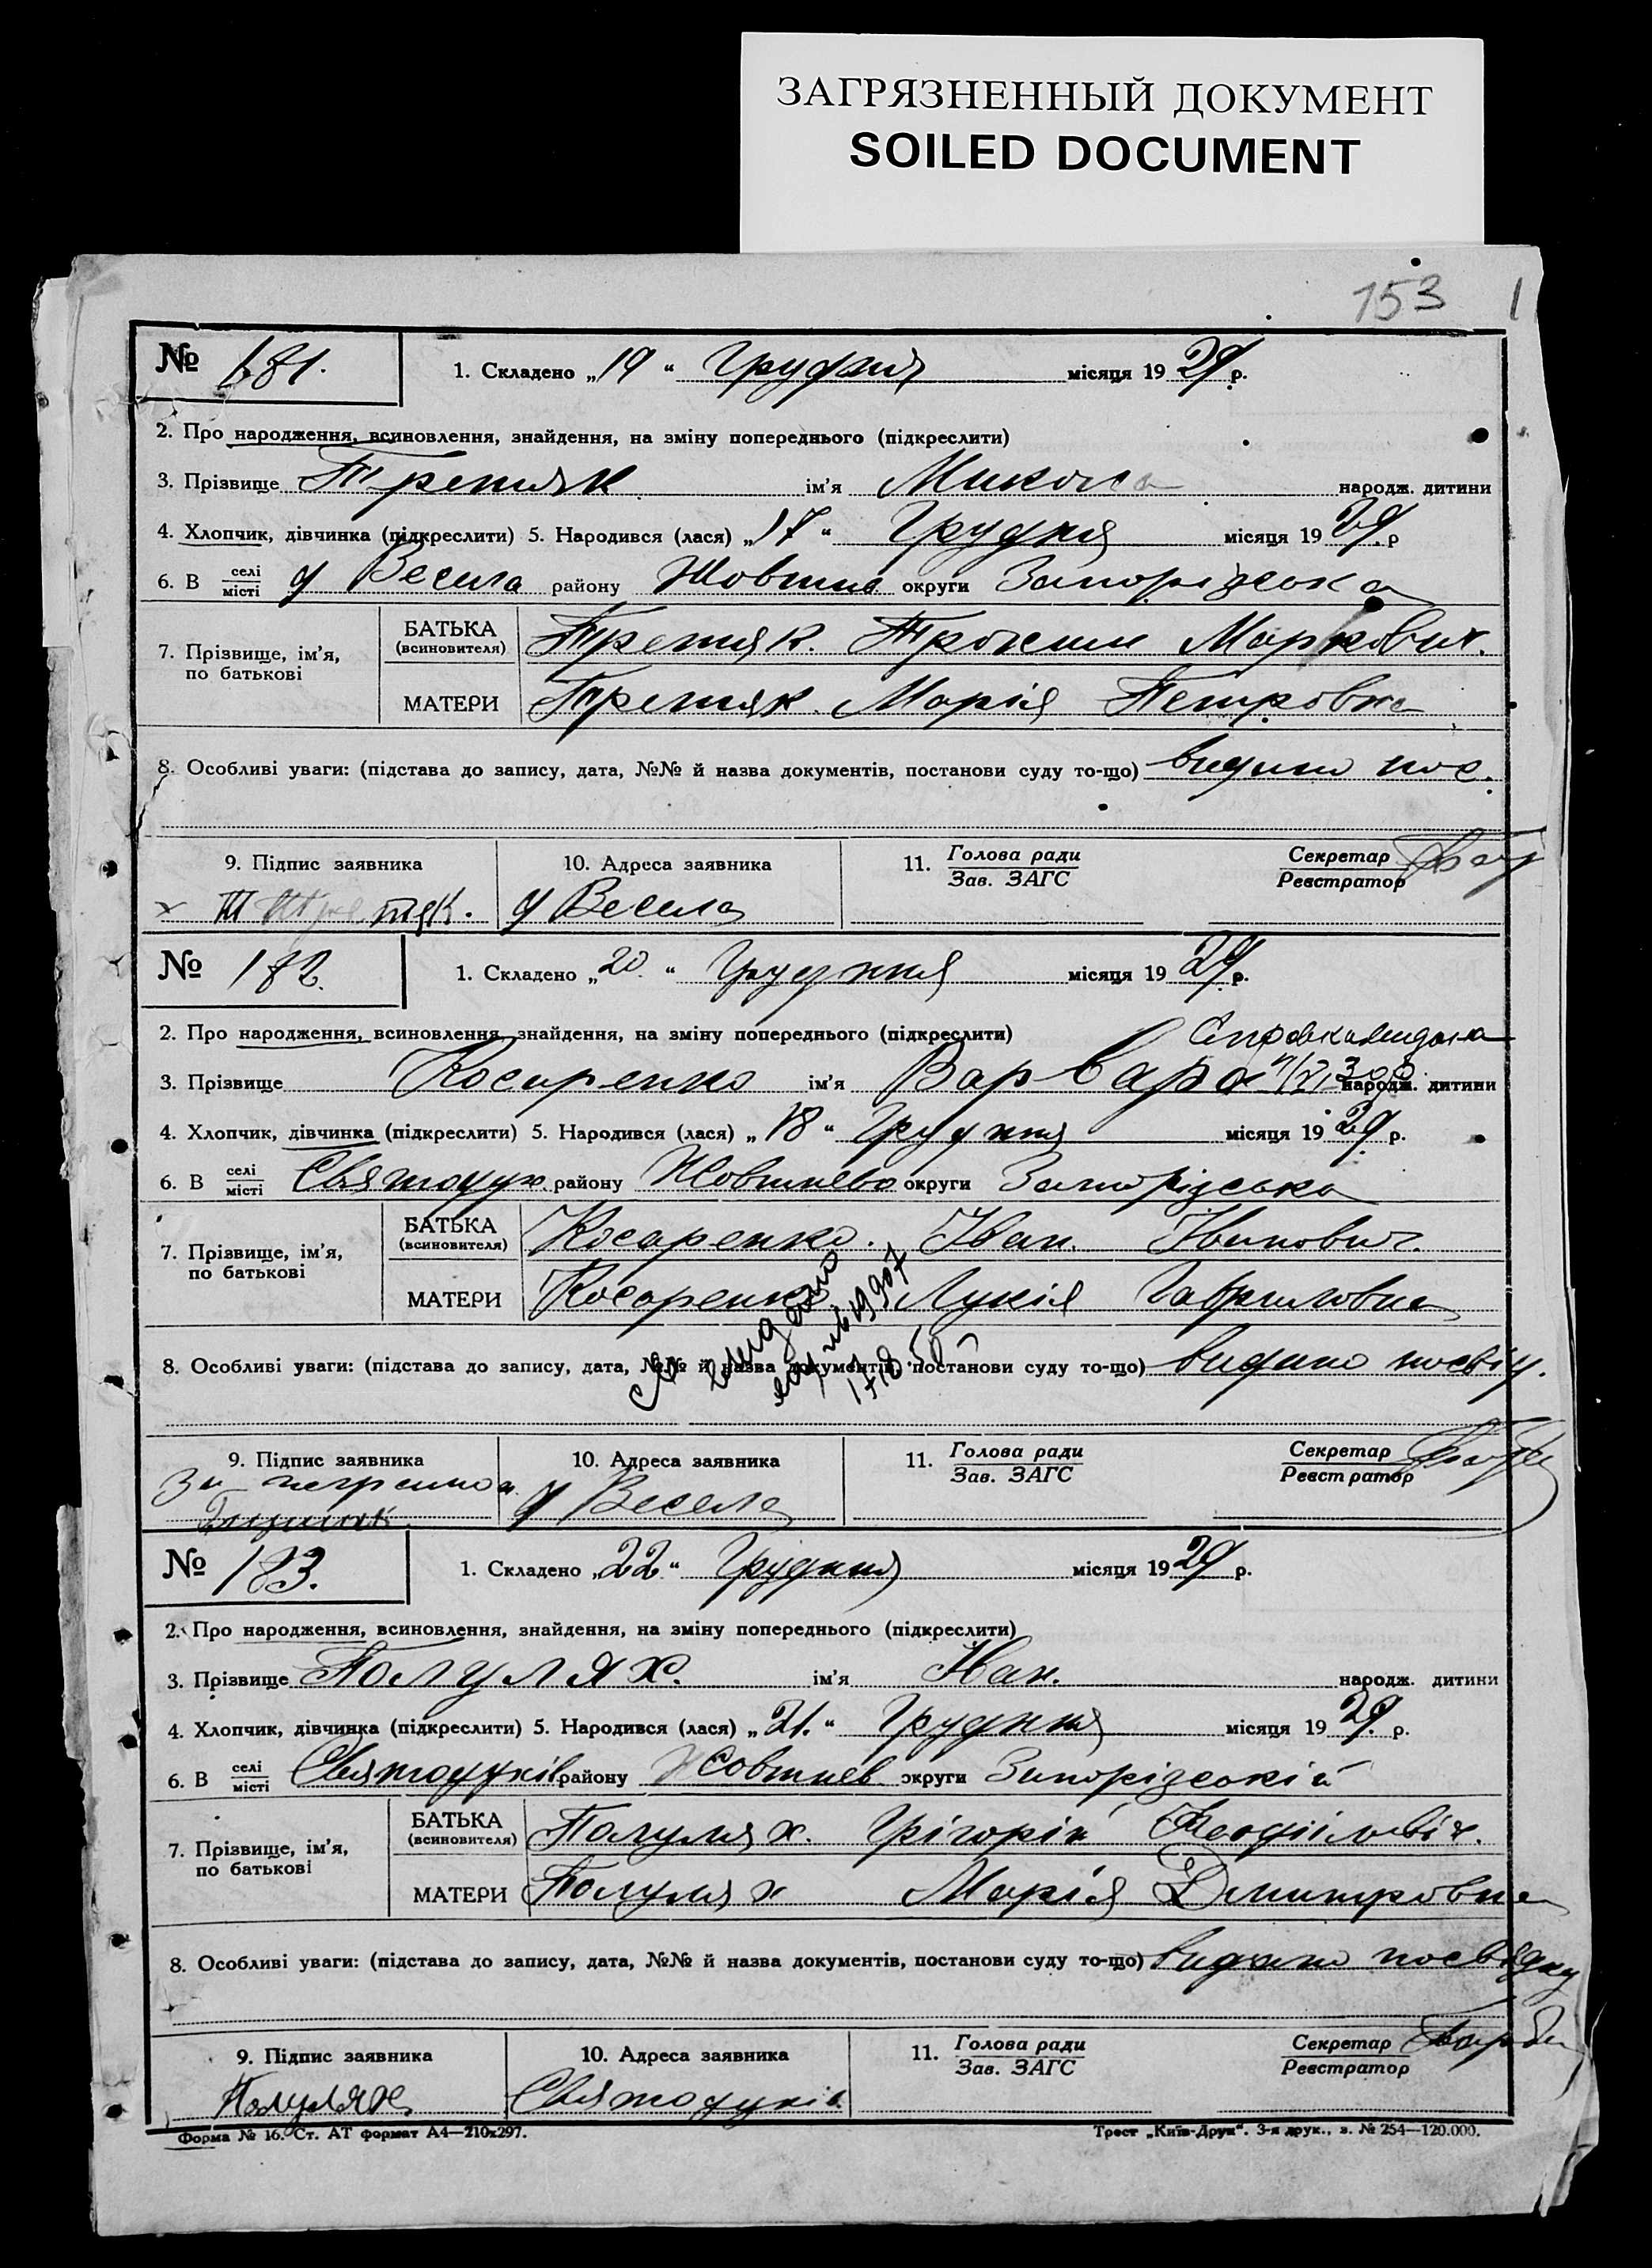 ЗАГРЯЗНЕННЫЙ ДОКУМЕНТ
SOILED DOCUMENT
153
№ 181. 1. Складено „19“ Грудня місяця 1929 р.
2. Про народження, всиновлення, знайдення, на зміну попереднього (підкреслити)
3. Прізвище Третяк ім'я Микола народж. дитини
4. Хлопчик, дівчинка (підкреслити) 5. Народився (лася) „17“ Грудня місяця 1929 р
6. В селі місті Весела району Жовтнів округи Запорізська
7. Прізвище, ім'я, по батькові
БАТЬКА (всиновителя) Третяк Трохим Маркович.
МАТЕРИ Третяк Марія Петровна
8. Особливі уваги: (підстава до запису, дата, №№ й назва документів, постанови суду то-що) видано пос.
9. Підпис заявника 10. Адреса заявника 11. Голова ради Зав. ЗАГС Секретар Реєстратор
Третяк. Весела
№ 182. 1. Складено „20.“ Грудння місяця 1929 р.
2. Про народження, всиновлення, знайдення, на зміну попереднього (підкреслити)
Справка видана
3. Прізвище Косаренко ім'я Варвара народж. дитини
4. Хлопчик, дівчинка (підкреслити) 5. Народився (лася) „18“ Грудння місяця 1929 р.
6. В селі місті Святодух. району Жовтнево округи Запорізська
7. Прізвище, ім'я, по батькові
БАТЬКА (всиновителя) Косаренко. Іван. Іванович.
МАТЕРИ Косаренко Лукія Гавриловна
8. Особливі уваги: (підстава до запису, дата, №№ й назва документів, постанови суду то-що) видано посвід.
9. Підпис заявника 10. Адреса заявника 11. Голова ради Зав. ЗАГС Секретар Реєстратор
За неграмотн. Весела
№ 183. 1. Складено „22“ Грудння місяця 1929 р.
2. Про народження, всиновлення, знайдення, на зміну попереднього (підкреслити)
3. Прізвище Полулях. ім'я Іван. народж. дитини
4. Хлопчик, дівчинка (підкреслити) 5. Народився (лася) „21.“ Грудння місяця 1929 р.
6. В селі місті Святодухів району Жовтнев округи Запорізській
7. Прізвище, ім'я, по батькові
БАТЬКА (всиновителя) Полулях. Грігорій Феофіловіч.
МАТЕРИ Полулях Марія Дмитровна
8. Особливі уваги: (підстава до запису, дата, №№ й назва документів, постанови суду то-що) видано посвідку
9. Підпис заявника 10. Адреса заявника 11. Голова ради Зав. ЗАГС Секретар Реєстратор
Полулях Святодухів
Форма № 16. Ст. АТ формат А4—210х297. Трест „Київ-Друк“. 3-я друк., з. № 254—120.000.